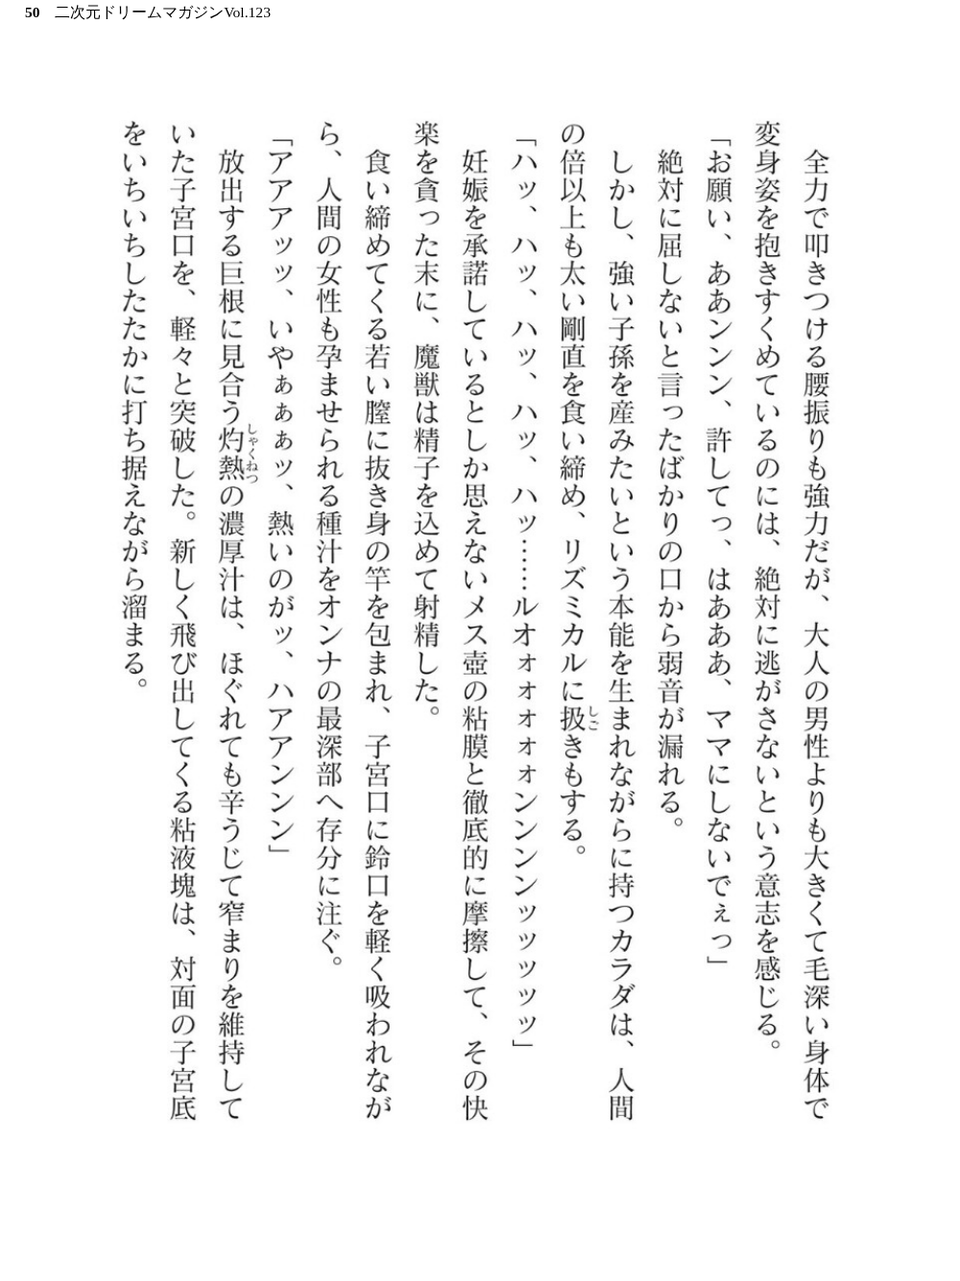 50 二次元ドリームマガジンVol.123
全力で叩きつける腰振りも強力だが、大人の男性よりも大きくて毛深い身体で
変身姿を抱きすくめているのには、絶対に逃がさないという意志を感じる。
「お願い、ああンンン、許してっ、はあああ、ママにしないでぇっ」
絶対に屈しないと言ったばかりの口から弱音が漏れる。
しかし、強い子孫を産みたいという本能を生まれながらに持つカラダは、人間
の倍以上も太い剛直を食い締め、リズミカルに扱しごきもする。
「ハッ、ハッ、ハッ、ハッ、ハッ……ルオォォォォォンンンンッッッッッ」
妊娠を承諾しているとしか思えないメス壺の粘膜と徹底的に摩擦して、その快
楽を貪った末に、魔獣は精子を込めて射精した。
食い締めてくる若い膣に抜き身の竿を包まれ、子宮口に鈴口を軽く吸われなが
ら、人間の女性も孕ませられる種汁をオンナの最深部へ存分に注ぐ。
「アアアッッ、いやぁぁぁッ、熱いのがッ、ハアアンンン」
放出する巨根に見合う灼熱しゃくねつの濃厚汁は、ほぐれても辛うじて窄まりを維持して
いた子宮口を、軽々と突破した。新しく飛び出してくる粘液塊は、対面の子宮底
をいちいちしたたかに打ち据えながら溜まる。